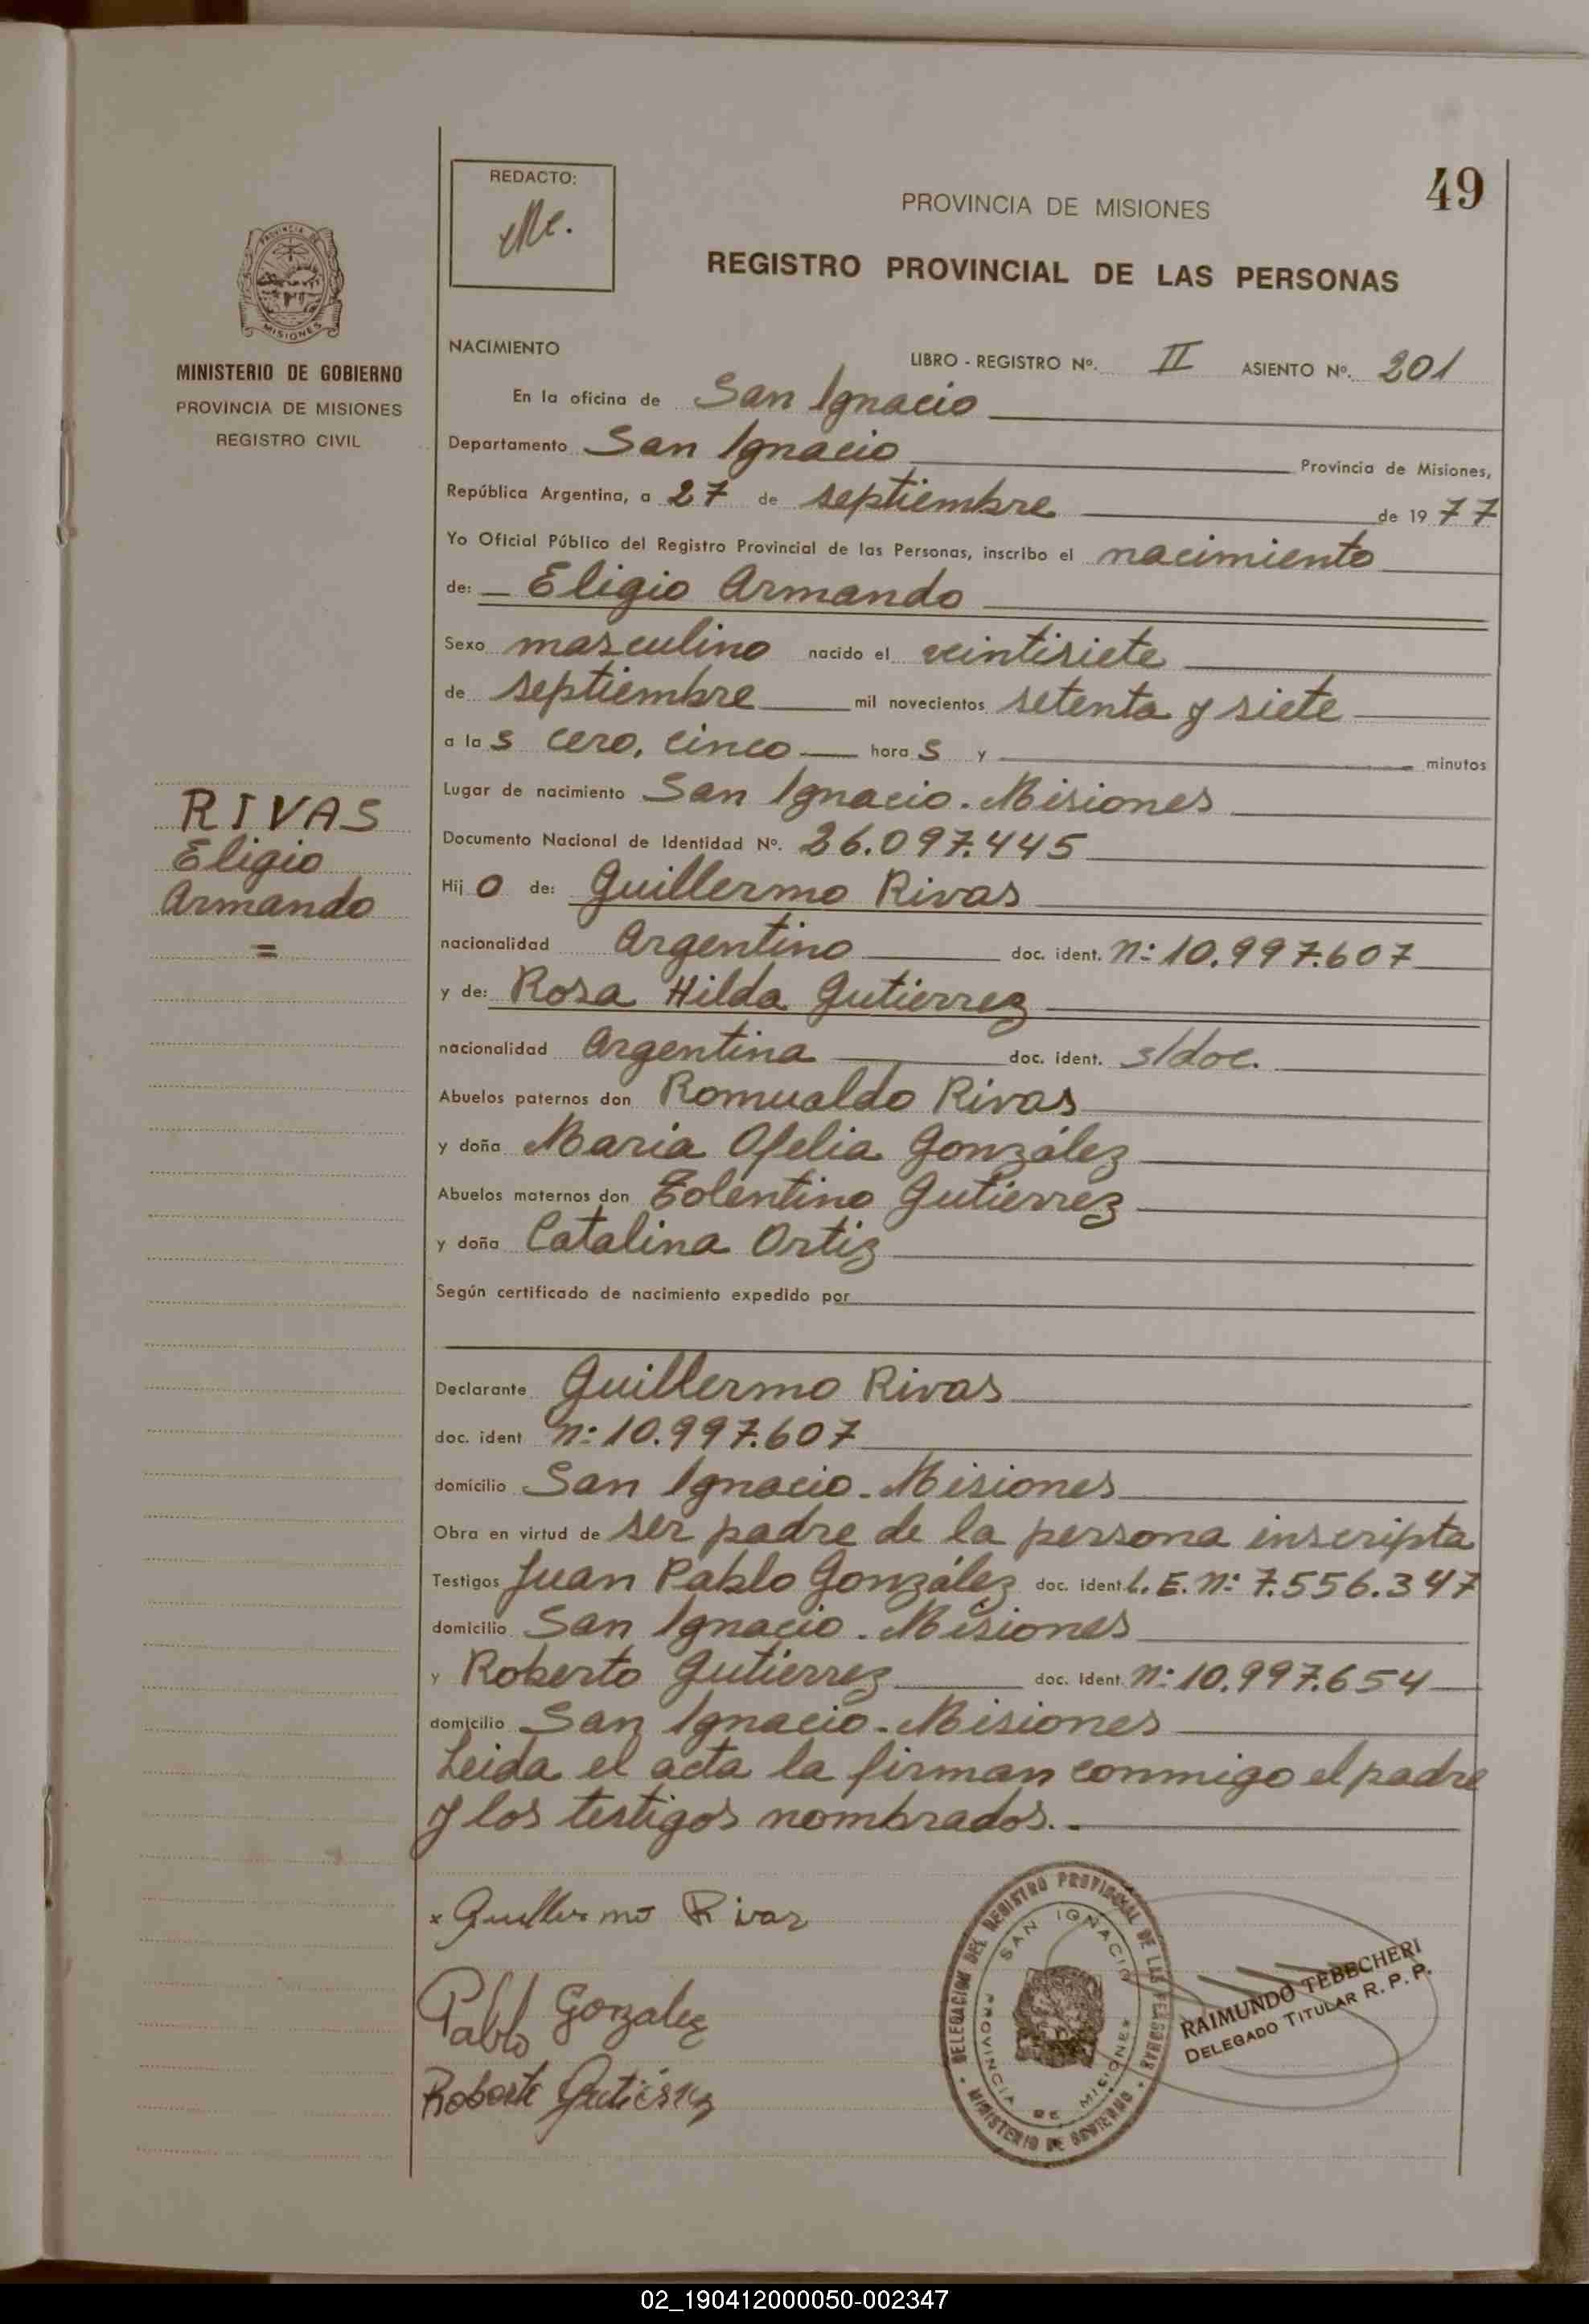 49
REDACTO:
PROVINCIA DE MISIONES
REGISTRO PROVINCIAL DE LAS PERSONAS
PROVINCIA DE
MISIONES
MINISTERIO DE GOBIERNO
PROVINCIA DE MISIONES
REGISTRO CIVIL
NACIMIENTO
LIBRO - REGISTRO Nº. II ASIENTO Nº. 201
En la oficina de San Ignacio
Departamento San Ignacio Provincia de Misiones,
República Argentina, a 27 de septiembre de 1977
Yo Oficial Público del Registro Provincial de las Personas, inscribo el nacimiento
de: Eligio Armando
Sexo masculino nacido el veintisiete
de septiembre mil novecientos setenta y siete
a las cero, cinco horas y minutos
Lugar de nacimiento San Ignacio. Misiones
RIVAS
Eligio
Armando
=
Documento Nacional de Identidad Nº. 26.097.445
Hijo de: Guillermo Rivas
nacionalidad Argentino doc. ident. n: 10.997.607
y de: Rosa Hilda Gutierrez
nacionalidad Argentina doc. ident. s/doc.
Abuelos paternos don Romualdo Rivas
y doña Maria Ofelia González
Abuelos maternos don Tolentino Gutierrez
y doña Catalina Ortiz
Según certificado de nacimiento expedido por
Declarante Guillermo Rivas
doc. ident n: 10.997.607
domicilio San Ignacio. Misiones
Obra en virtud de ser padre de la persona inscripta
Testigos Juan Pablo González doc. ident L.E. n: 7.556.347
domicilio San Ignacio. Misiones
y Roberto Gutierrez doc. Ident. n: 10.997.654
domicilio San Ignacio. Misiones
Leida el acta la firman conmigo el padre
y los testigos nombrados..
x Guillermo Rivas
Pablo Gonzalez
Roberto Gutiérrez
DELEGACION DEL REGISTRO PROVINCIAL DE LAS PERSONAS
MINISTERIO DE GOBIERNO
SAN IGNACIO
PROVINCIA DE MISIONES
RAIMUNDO TEBECHERI
DELEGADO TITULAR R. P. P.
02_190412000050-002347